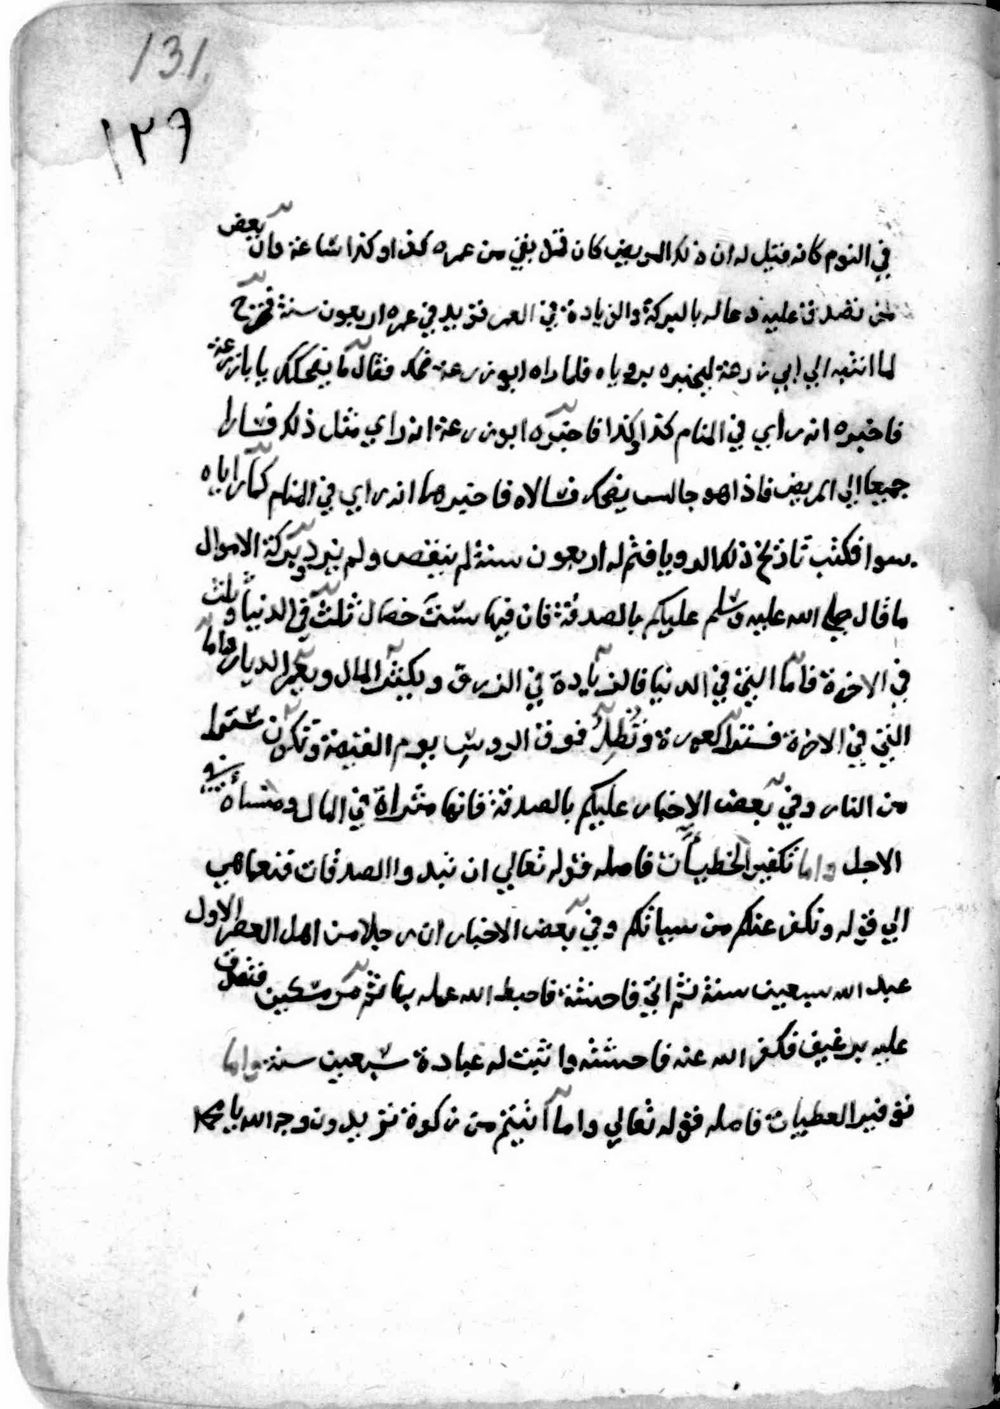 131.
١٢٩
في النوم كانه فقيل له ان ذلك المريض كان قد بقي من عمره كذا وكذا ساعة وان بعض
من تصدق عليه دعا له بالبركة والزيادة في العمر فزيد في عمره اربعون سنة فخرج
لما انتبه الي ابي زرعة ليخبره برؤياه فلما راه ابو زرعة ضحك فقال ما يضحكك يا با زرعة
فاخبره انه راي في المنام كذا وكذا فاخبره ابو زرعة انه راي مثل ذلك فسارا
جميعا الي المريض فاذا هو جالس يضحك فسالاه فاخبرهما انه راي في المنام كما راياه
سوا فكتب تاريخ ذلك الرويا فتم له اربعون سنة لم ينقص ولم يزد وبركة الاموال
ما قال صلي الله عليه وسلم عليكم بالصدقة فان فيها ست خصال ثلث في الدنيا وثلث
في الاخرة فاما التي في الدنيا فالزيادة في الرزق ويكثر المال ويعمر الديار واما
التي في الاخرة فستر العورة وتظل فوق الروس يوم القيمة وتكون سترا
من النار وفي بعض الاخبار عليكم بالصدقة فانها مثراة في المال ومنساة في
الاجل واما تكفير الخطيات فاصله قوله تعالي ان تبدوا الصدقات فنعما هي
الي قوله ونكفر عنكم من سياتكم وفي بعض الاخبار ان رجلا من اهل العصر الاول
عبد الله سبعين سنة ثم اتي فاحشة فاحبط الله عمله بها ثم مر مسكين فتصدق
عليه برغيف فكفر الله عنه فاحشته واثبت له عبادة سبعين سنة واما
توفير العطيات فاصله قوله تعالي وما آتيتم من زكوة تريدون وجه الله